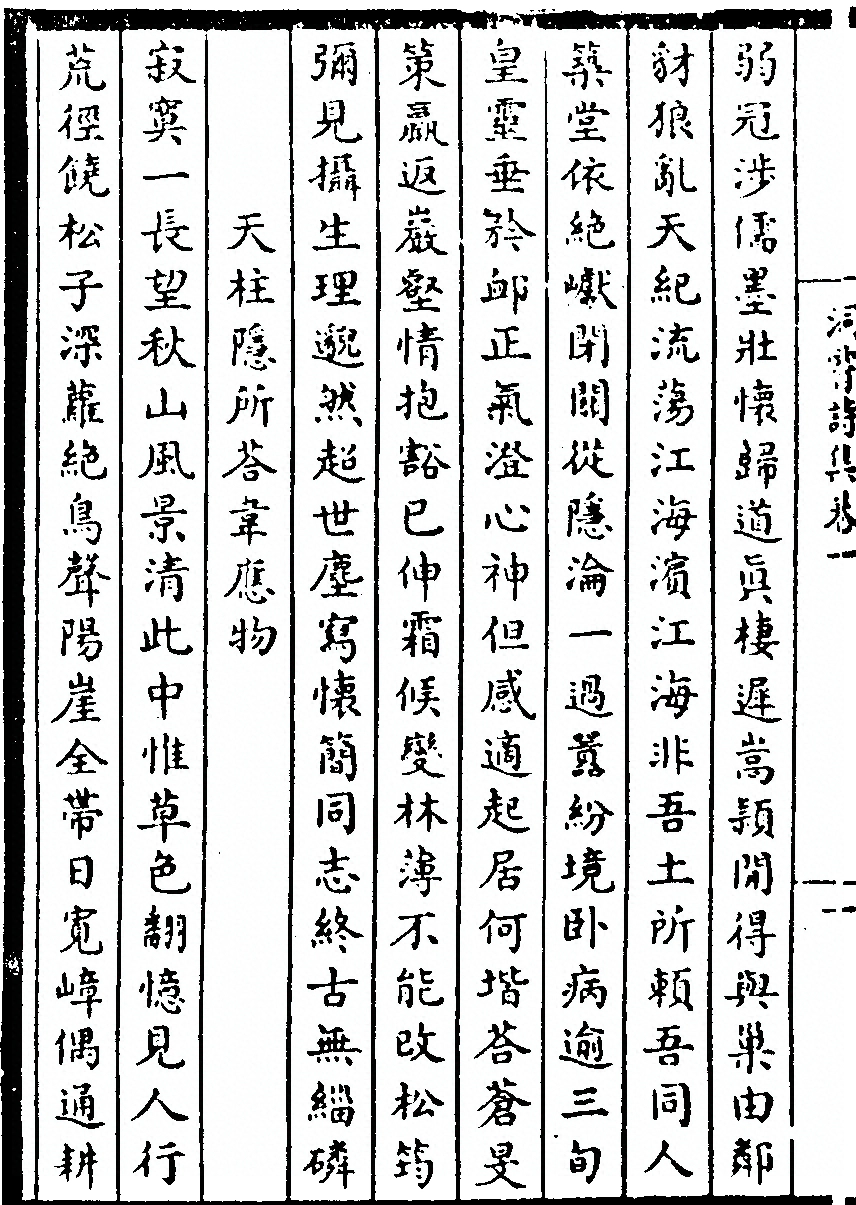 洞霄詩集卷一
一
弱冠涉儒墨壯懷歸道真棲遲嵩潁間得與巢由鄰
豺狼亂天紀流蕩江海濱江海非吾土所賴吾同人
築堂依絕巘閉關從隱淪一過囂紛境卧病逾三旬
皇靈垂於邮正氣澄心神但感適起居何堦荅蒼旻
策羸返巖壑情抱豁已伸霜候變林薄不能改松筠
彌見攝生理邈然超世塵寫懷簡同志終古無緇磷
天柱隱所荅韋應物
寂寞一長望秋山風景清此中惟草色翻憶見人行
荒徑饒松子深蘿絕鳥聲陽崖全帶日寬嶂偶通耕